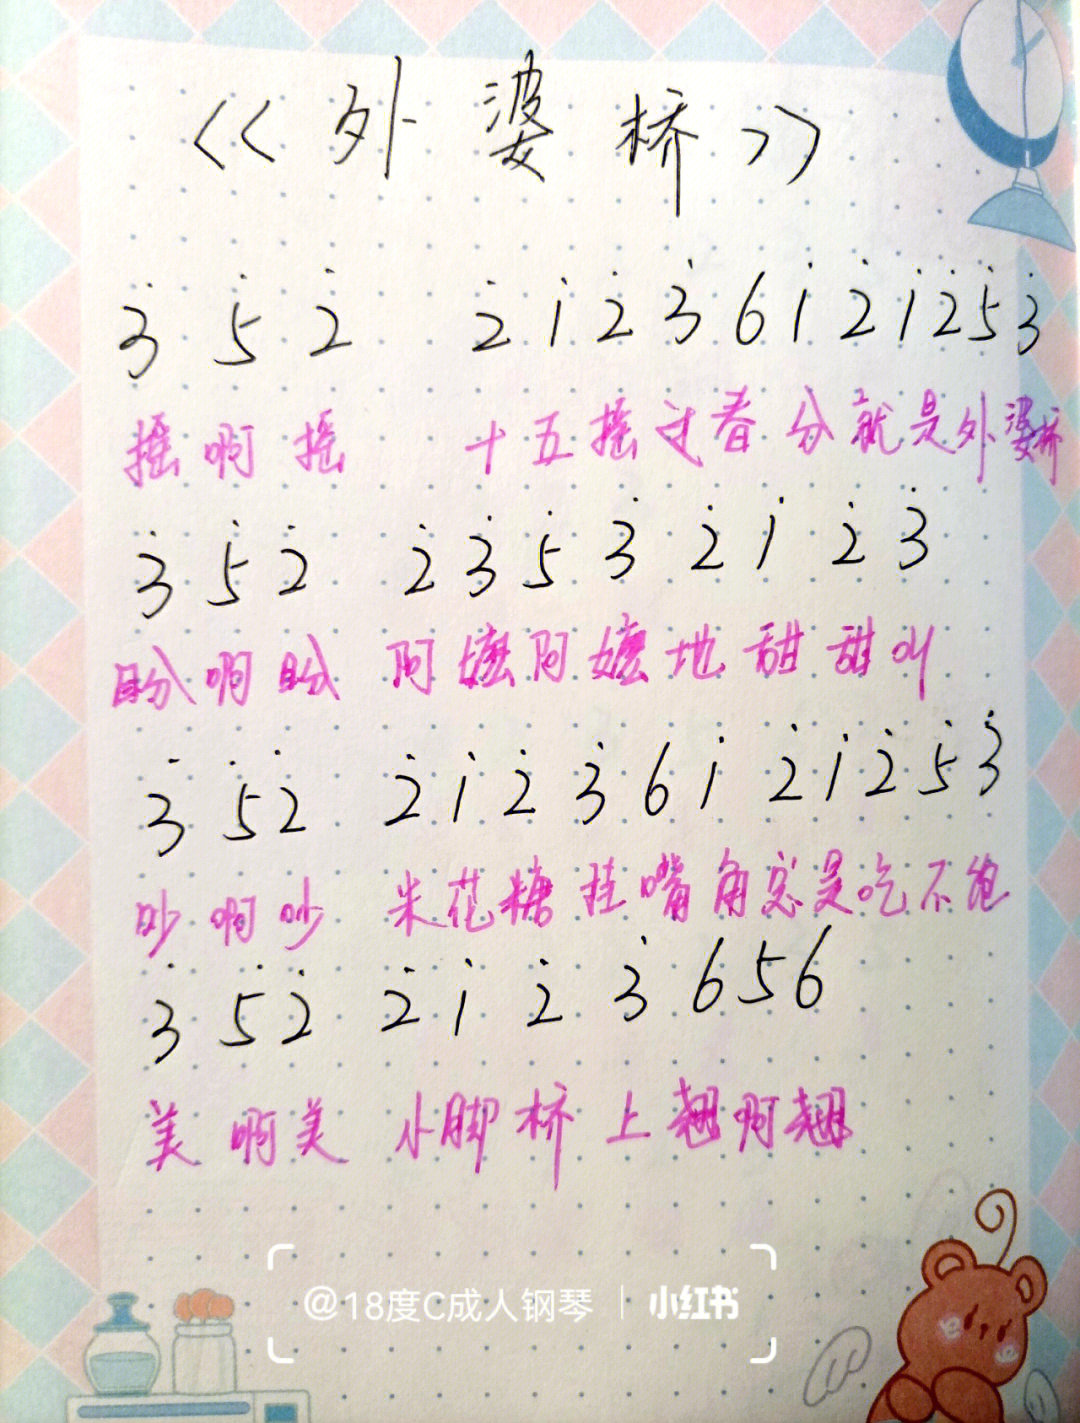 《外婆桥》
3̇ 5̇ 2̇ 2̇ 1̇ 2̇ 3̇ 6 1̇ 2̇ 1̇ 2̇ 5̇ 3̇
摇啊摇 十五摇过春分就是外婆桥
3̇ 5̇ 2̇ 2̇ 3̇ 5̇ 3̇ 2̇ 1̇ 2̇ 3̇
盼啊盼 阿嬷阿嬷地甜甜叫
3̇ 5̇ 2̇ 2̇ 1̇ 2̇ 3̇ 6 1̇ 2̇ 1̇ 2̇ 5̇ 3̇
吵啊吵 米花糖挂嘴角总是吃不饱
3̇ 5̇ 2̇ 2̇ 1̇ 2̇ 3̇ 6 5 6
美啊美 小脚桥上翘啊翘
@18度C成人钢琴 | 小红书